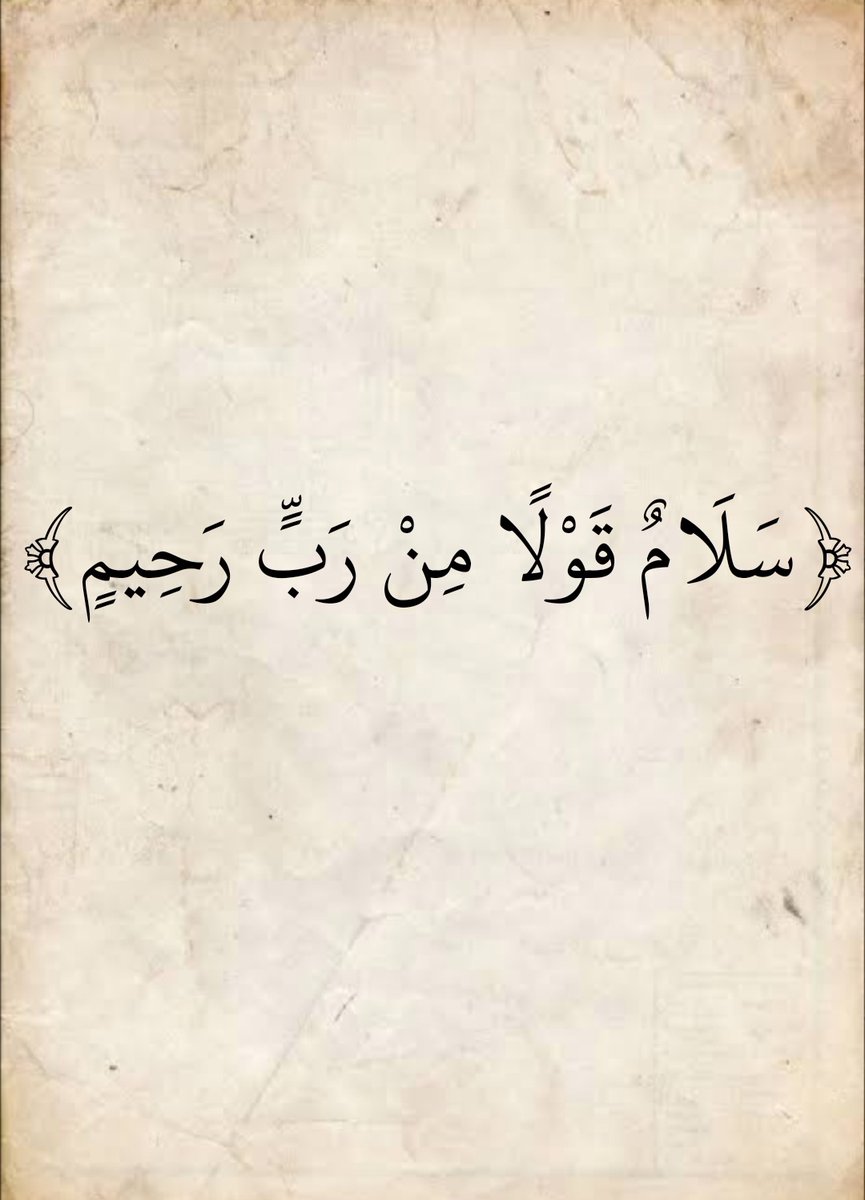 ﴿سَلَامٌ قَوْلًا مِنْ رَبٍّ رَحِيمٍ﴾